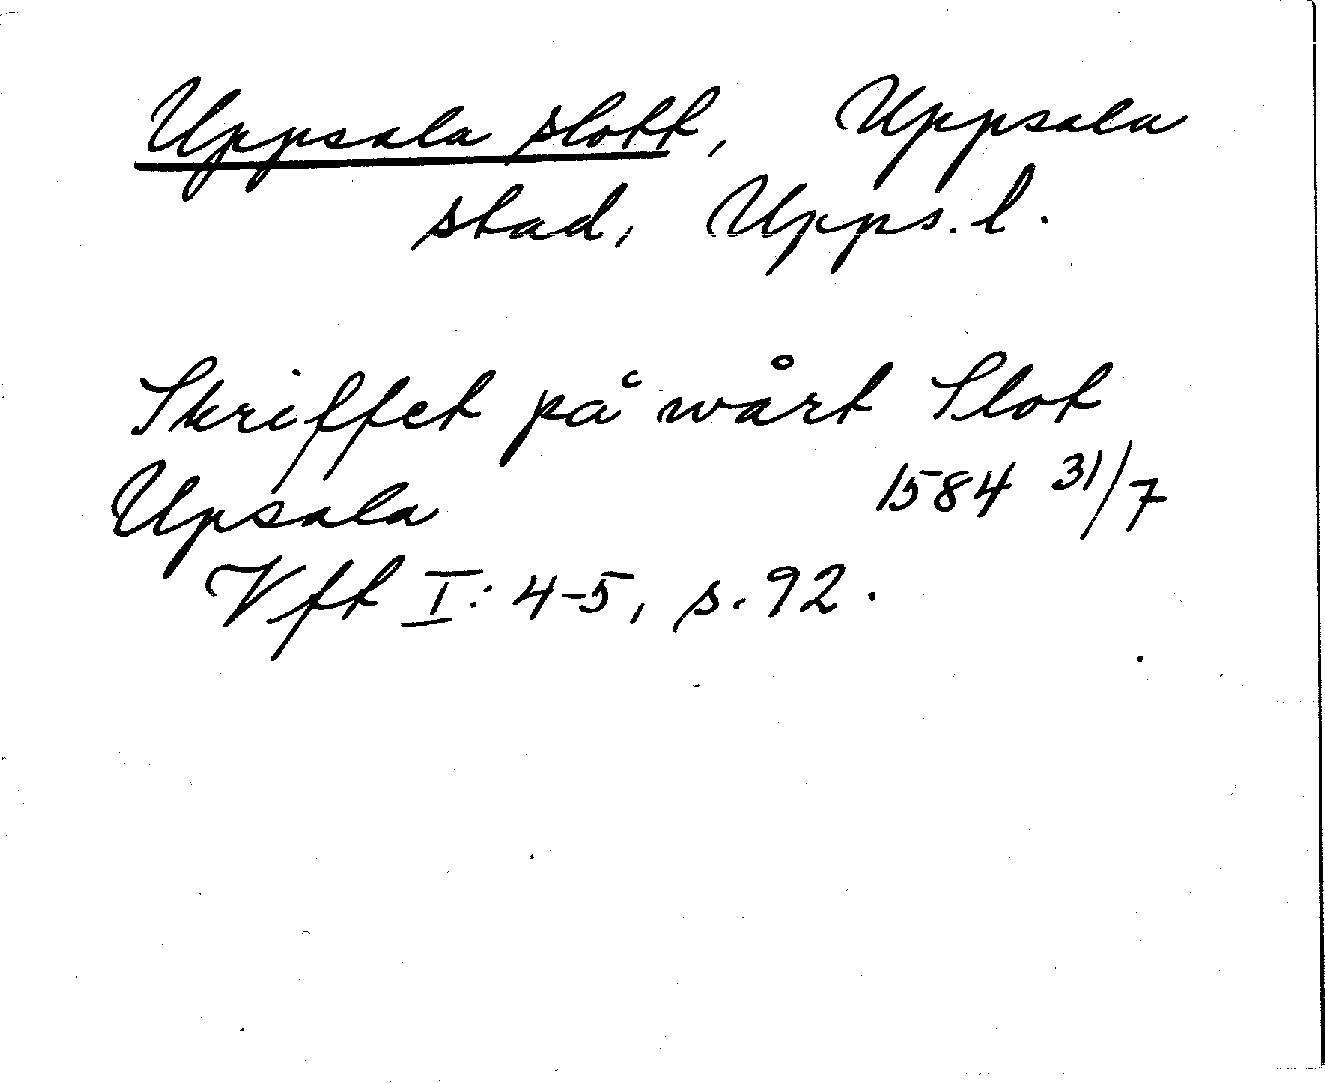 Uppsala slott, Uppsala
stad, Upps. l.
Skriffet på wårt Slot
Upsala 1584 31/7
Vft I: 4-5, s. 92.